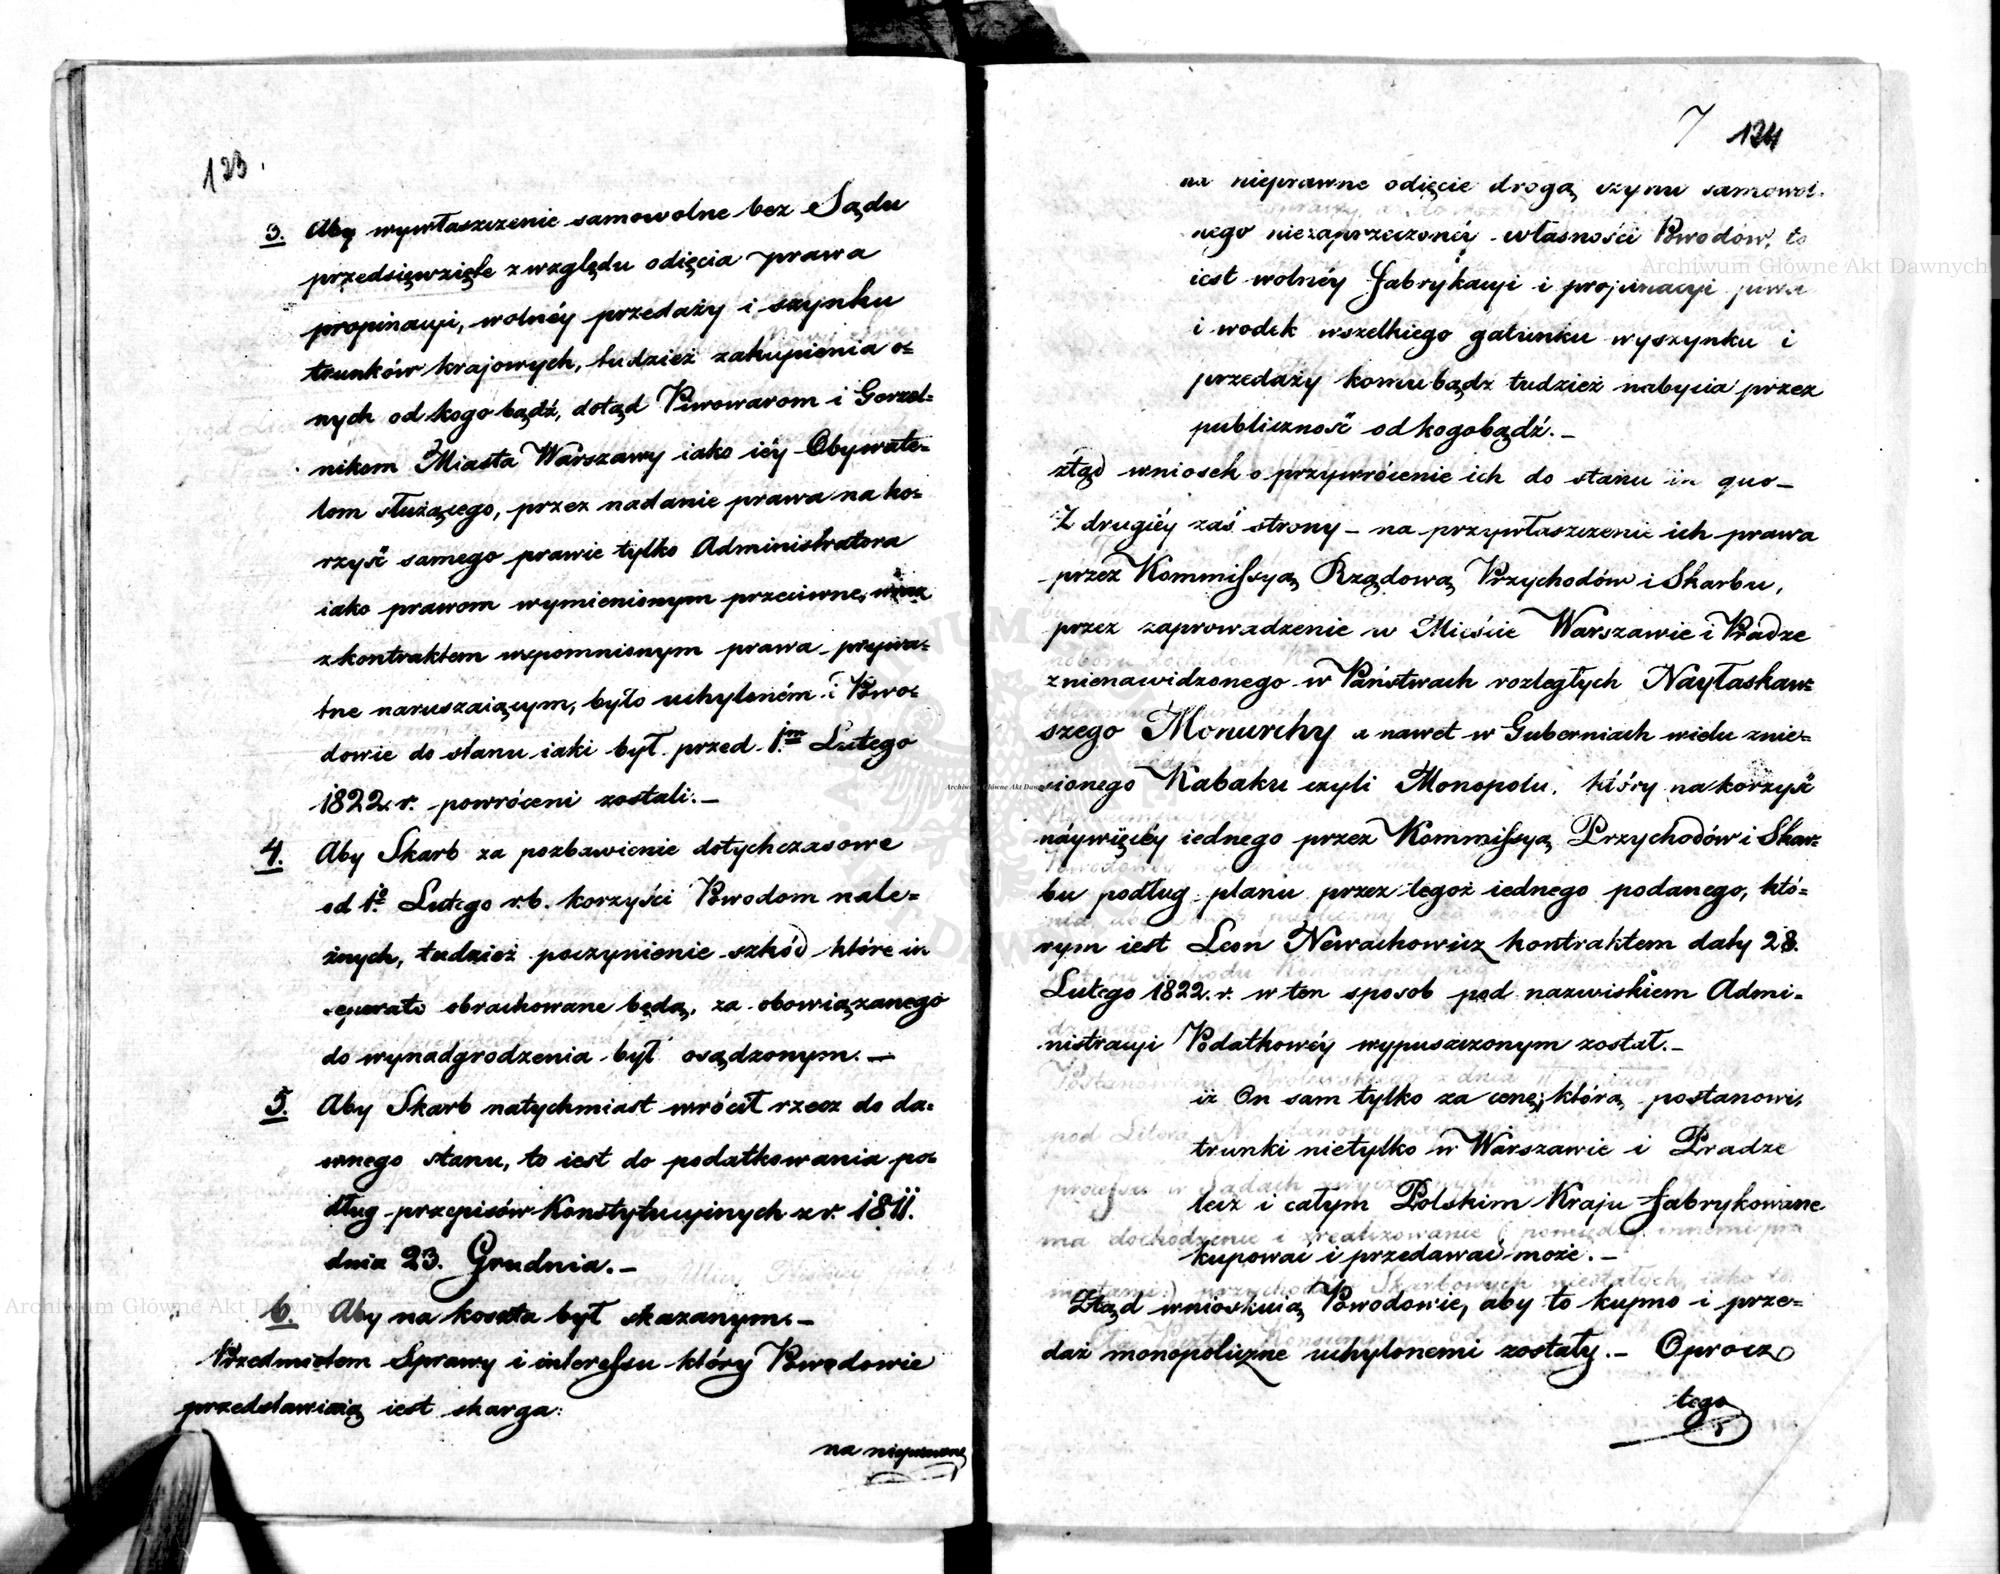 123.
3. Aby wywłaszczenie samowolne bez Sądu
przedsięwzięte z względu odięcia prawa
propinacyi, wolnéy przedaży i szynku
trunków krajowych, tudzież zakupienia o=
nych od kogo bądź, dotąd Piwowarom i Gorzel=
nikom Miasta Warszawy iako iéy Obywate=
lom służącego, przez nadanie prawa na ko=
rzyść samego prawie tylko Administratora
iako prawom wymienionym przeciwne, wraz
z kontraktem wspomnionym prawa prywa=
tne naruszaiącym, było uchyloném i Powo=
dowie do stanu iaki był przed 1m Lutego
1822. r. powróceni zostali.—
4. Aby Skarb za pozbawienie dotychczasowe
od 1o Lutego r.b. korzyści Powodom nale=
żnych, tudzież poczynienie szkód które in
separato obrachowane będą, za obowiązanego
do wynadgrodzenia był osądzonym.—
5. Aby Skarb natychmiast wrócił rzecz do da=
wnego stanu, to iest do podatkowania po=
dług przepisów Konstytucyinych z r. 1811.
dnia 23. Grudnia.—
6. Aby na koszta był skazanym.—
Przedmiotem Sprawy i interessu który Powodowie
przedstawiaią iest skarga:
na nieprawne
7 124
na nieprawne odięcie drogą czynu samowol=
nego niezaprzeczonéy własności Powodów, to
iest wolnéy fabrykacyi i propinacyi piwa
i wodek wszelkiego gatunku wyszynku i
przedaży komubądz tudzież nabycia przez
publiczność od kogobądź.—
ztąd wniosek o przywrócenie ich do stanu in quo—
Z drugiéy zaś strony — na przywłaszczenie ich prawa
przez Kommissyą Rządową Przychodów i Skarbu,
przez zaprowadzenie w Mieście Warszawie i Pradze
znienawidzonego w Państwach rozległych Nayłaskaw=
szego Monarchy a nawet w Guberniach wielu znie=
sionego Kabaku czyli Monopolu, który na korzyść
náywięcéy iednego przez Kommissyą Przychodów i Skar=
bu podług planu przez tegoż iednego podanego, któ=
rym iest Leon Newachowicz kontraktem daty 28.
Lutego 1822. r. w ten sposob pod nazwiskiem Admi=
nistracyi Podatkowéy wypuszczonym został.—
iż On sam tylko za cenę, którą postanowi,
trunki nietylko w Warszawie i Pradze
lecz i całym Polskim Kraju fabrykowane
kupować i przedawać może.—
Ztąd wnioskuią Powodowie, aby to kupno i prze=
daż monopoliczne uchylonemi zostały.— Oprocz
tego
Archiwum Główne Akt Dawnych
Archiwum Główne Akt Dawnych
Archiwum Główne Akt Dawnych